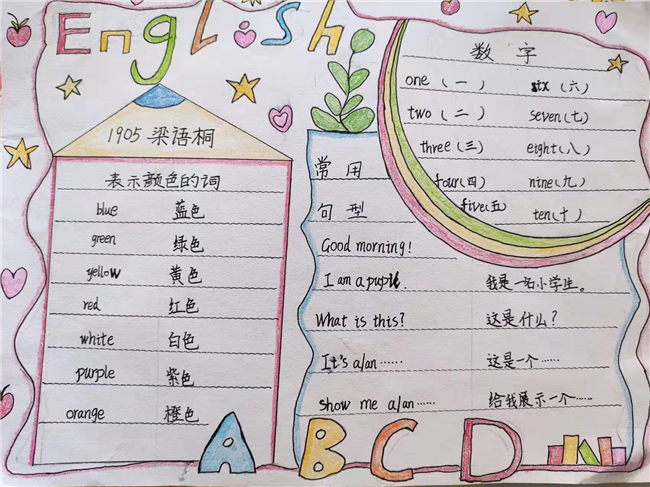 English
1905 梁语桐
表示颜色的词
blue 蓝色
green 绿色
yellow 黄色
red 红色
white 白色
purple 紫色
orange 橙色
数字
one (一) six (六)
two (二) seven(七)
three(三) eight(八)
four(四) nine(九)
five(五) ten(十)
常用
句型
Good morning!
I am a pupil. 我是一名小学生。
What is this? 这是什么?
It's a/an …… 这是一个……
Show me a/an …… 给我展示一个……
A B C D